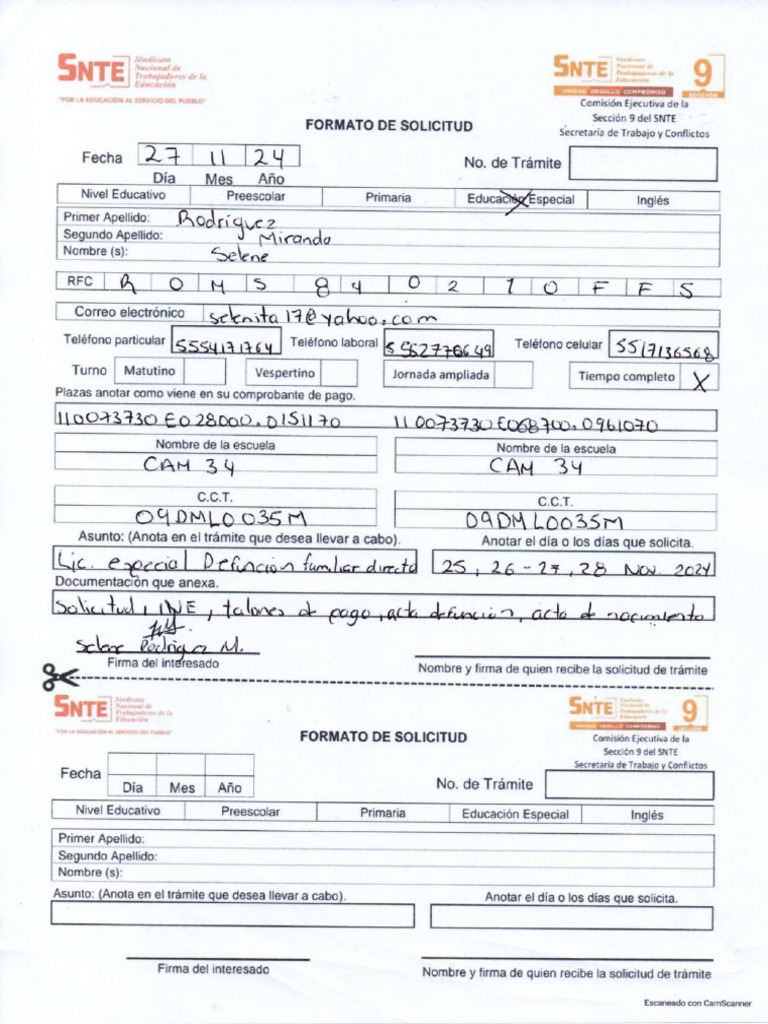 SNTE Sindicato Nacional de Trabajadores de la Educación
"POR LA EDUCACIÓN AL SERVICIO DEL PUEBLO"
SNTE Sindicato Nacional de Trabajadores de la Educación 9
UNIDAD ORGULLO COMPROMISO SECCIÓN
Comisión Ejecutiva de la
Sección 9 del SNTE
Secretaría de Trabajo y Conflictos
FORMATO DE SOLICITUD
Fecha 27 11 24 No. de Trámite
Día Mes Año
Nivel Educativo Preescolar Primaria Educación Especial X Inglés
Primer Apellido: Rodríguez
Segundo Apellido: Miranda
Nombre (s): Selene
RFC R O M S 8 4 0 2 1 0 F F 5
Correo electrónico selenita17@yahoo.com
Teléfono particular 5554171764 Teléfono laboral 5562776649 Teléfono celular 5517136568
Turno Matutino Vespertino Jornada ampliada Tiempo completo X
Plazas anotar como viene en su comprobante de pago.
110073730E028000.0151170 110073730E068700.0961070
Nombre de la escuela Nombre de la escuela
CAM 34 CAM 34
C.C.T. C.C.T.
09DML0035M 09DML0035M
Asunto: (Anota en el trámite que desea llevar a cabo). Anotar el día o los días que solicita.
Lic. especial Defuncion familiar directo 25, 26-27, 28 Nov. 2024
Documentación que anexa.
Solicitud, INE, talones de pago, acta defunción, acta de nacimiento
Selene Rodrigez M.
Firma del interesado Nombre y firma de quien recibe la solicitud de trámite
SNTE Sindicato Nacional de Trabajadores de la Educación
"POR LA EDUCACIÓN AL SERVICIO DEL PUEBLO"
SNTE Sindicato Nacional de Trabajadores de la Educación 9
UNIDAD ORGULLO COMPROMISO SECCIÓN
FORMATO DE SOLICITUD
Comisión Ejecutiva de la
Sección 9 del SNTE
Secretaría de Trabajo y Conflictos
Fecha No. de Trámite
Día Mes Año
Nivel Educativo Preescolar Primaria Educación Especial Inglés
Primer Apellido:
Segundo Apellido:
Nombre (s):
Asunto: (Anota en el trámite que desea llevar a cabo). Anotar el día o los días que solicita.
Firma del interesado Nombre y firma de quien recibe la solicitud de trámite
Escaneado con CamScanner